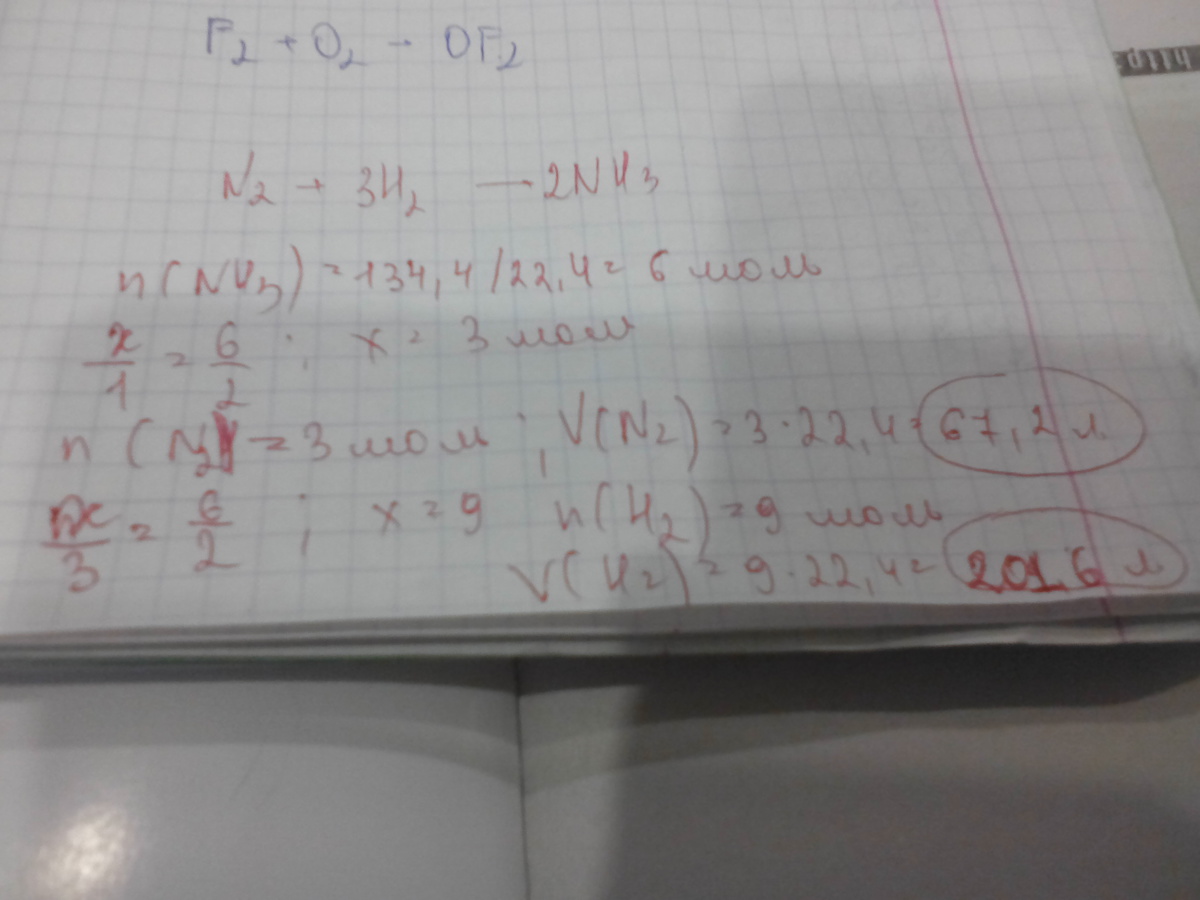 F₂ + O₂ → OF₂
N₂ + 3H₂ — 2NH₃
n(NH₃) = 134,4/22,4 = 6 моль
x/1 = 6/2 ; x = 3 моль
n(N₂) = 3 моль ; V(N₂) = 3·22,4 = 67,2 л
x/3 = 6/2 ; x = 9 n(H₂) = 9 моль
V(H₂) = 9·22,4 = 201.6 л